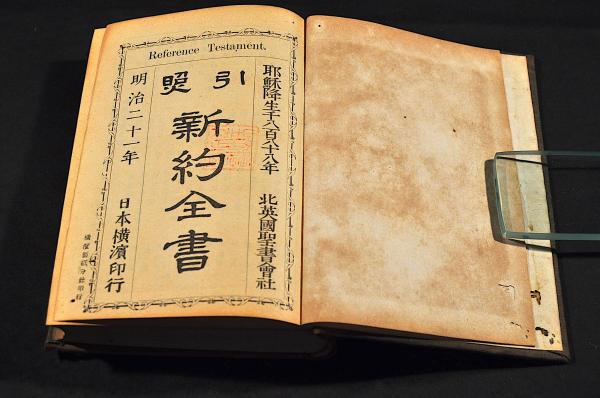 Reference Testament.
耶穌降生千八百八十八年 北英國聖書會社
引照
新約全書
明治二十一年 日本橫濱印行